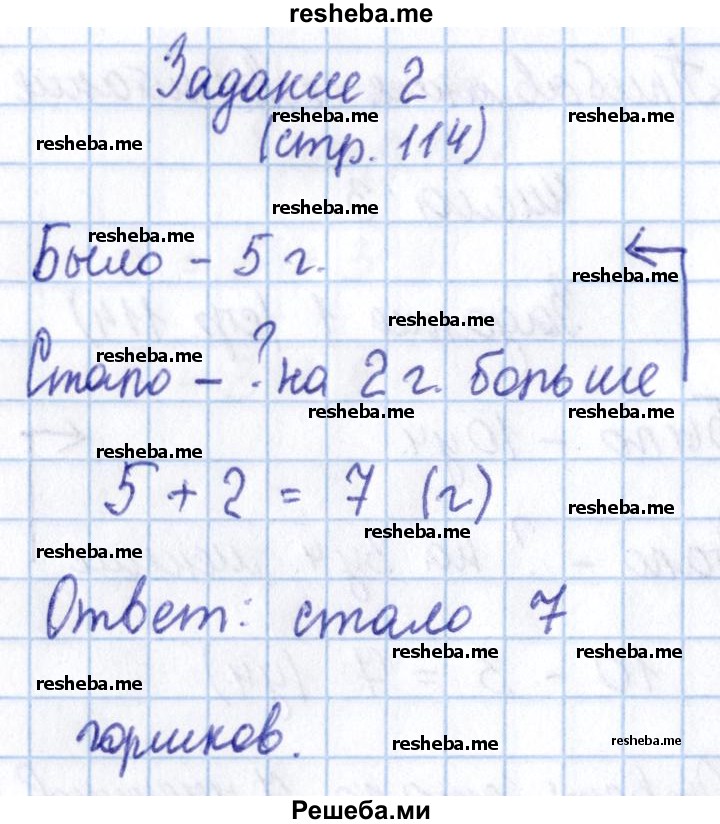 resheba.me
Задание 2
resheba.me resheba.me
resheba.me (стр. 114)
resheba.me
resheba.me
Было - 5 г.
resheba.me
resheba.me
resheba.me
Стало - ? на 2 г. больше
resheba.me resheba.me
resheba.me
5 + 2 = 7 (г)
resheba.me
resheba.me
resheba.me
Ответ: стало 7
resheba.me resheba.me
resheba.me
горшков.
resheba.me resheba.me
Решеба.ми